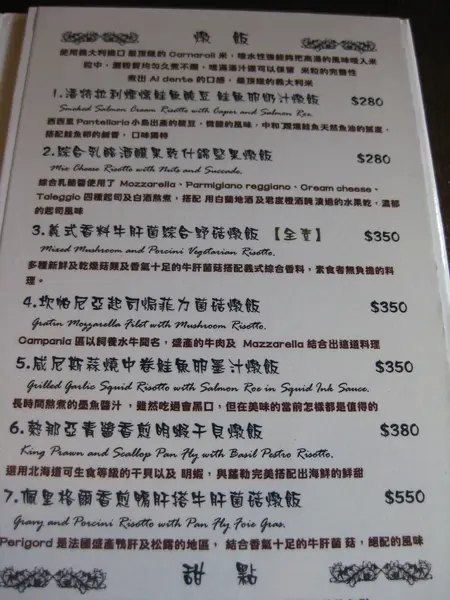 燉飯
使用義大利進口 最頂級的 Carnaroli 米，吸水性強能夠把高湯的風味吸入米
粒中，顆粒皆均勻久煮不爛，吸滿湯汁還可以保留 米粒的完整性
煮出 Al dente 的口感， 最頂級的義大利米
$280
Smoked Salmon Cream Risotto with Caper and Salmon Roe.
西西里 Pantellaria 小島出產的酸豆，微酸的風味，中和
搭配鮭魚卵的鹹香，口味獨特
2.綜合乳酪酒釀果乾什錦堅果燉飯 $280
Mix Cheese Risotto with Nuts and Succade.
綜合乳酪醬使用了 Mozzarella、Parmigiano reggiano、Cream cheese、
Taleggio 四種起司及白酒熬煮，搭配 用白蘭地酒及君度橙酒醃漬過的水果乾，濃郁
的起司風味
3.義式香料牛肝菌綜合野菇燉飯 【全素】 $350
Mixed Mushroom and Porcini Vegetarian Risotto.
多種新鮮及乾燥菇類及香氣十足的牛肝菌菇搭配義式綜合香料，素食者無負擔的料
理。
4.坎帕尼亞起司焗菲力菌菇燉飯 $350
Gratin Mozzarella Filet with Mushroom Risotto.
Campania 區以飼養水牛聞名，盛產的牛肉及 Mazzarella 結合出這道料理
5.威尼斯蒜燒中卷鮭魚卵墨汁燉飯 $350
Grilled Garlic Squid Risotto with Salmon Roe in Squid Ink Sauce.
長時間熬煮的墨魚醬汁 ，雖然吃過會黑口，但在美味的當前怎樣都是值得的
6.熱那亞青醬香煎明蝦干貝燉飯 $380
King Prawn and Scallop Pan Fly with Basil Pestro Risotto.
選用北海道可生食等級的干貝以及 明蝦，與羅勒完美搭配出海鮮的鮮甜
7.佩里格爾香煎鴨肝搭牛肝菌菇燉飯 $550
Gravy and Porcini Risotto with Pan Fly Foie Gras.
Perigord 是法國盛產鴨肝及松露的地區， 結合香氣十足的牛肝菌菇，絕配的風味
甜點